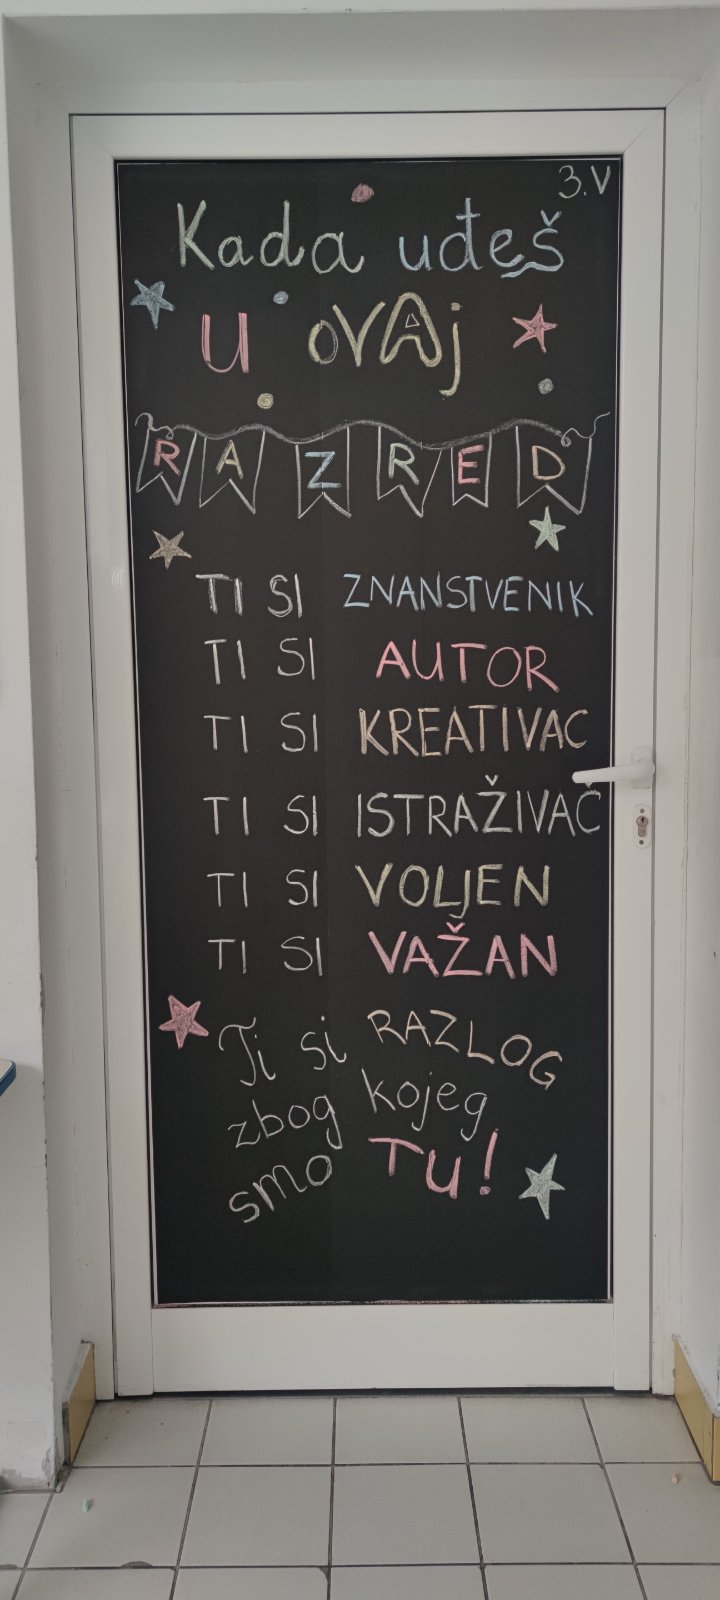 3.V
Kada uđeš
u ovAj
RAZRED
TI SI ZNANSTVENIK
TI SI AUTOR
TI SI KREATIVAC
TI SI ISTRAŽIVAČ
TI SI VOLJEN
TI SI VAŽAN
Ti si RAZLOG
zbog kojeg
smo TU!